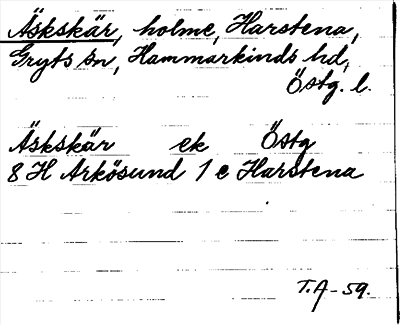 Äskskär, holme, Harstena,
Gryts sn, Hammarkinds hd,
Östg. l.
Äskskär ek Östg
8 H Arkösund 1 e Harstena
T.A-59.